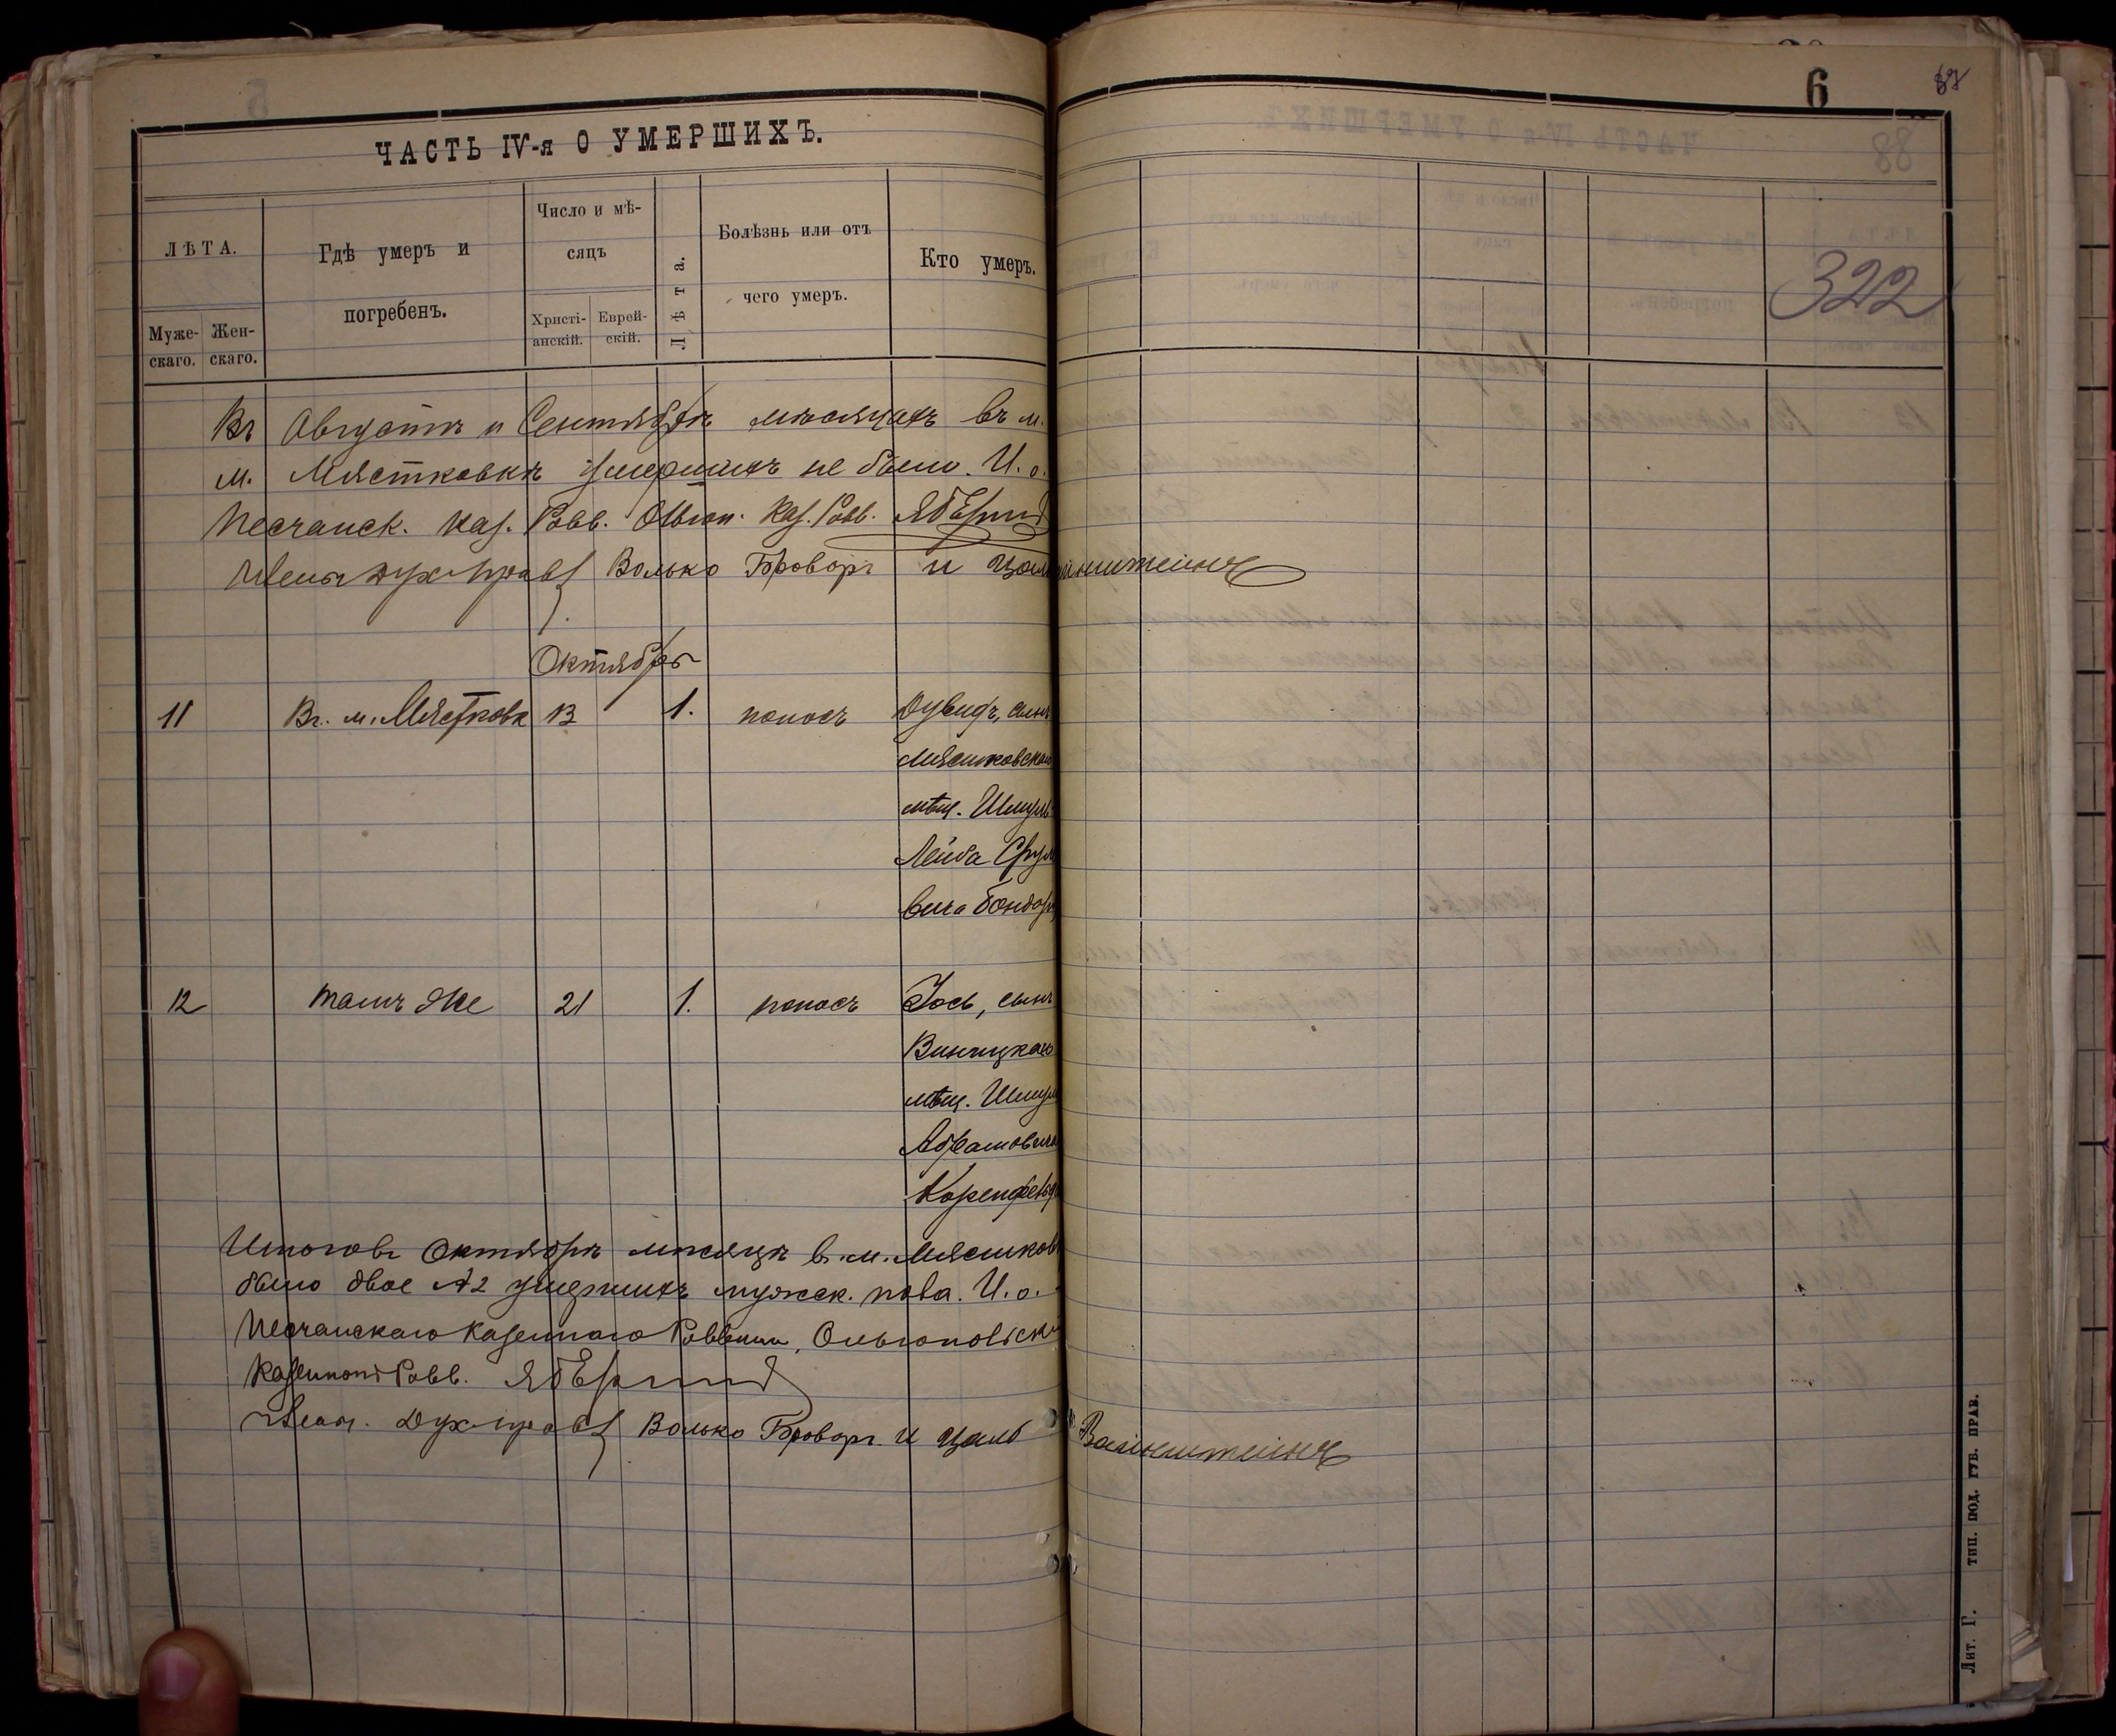 6
87
ЧАСТЬ IV-я О УМЕРШИХЪ.
ЛѢТА.
Муже-
скаго.
Жен-
скаго.
Гдѣ умеръ и
погребенъ.
Число и мѣ-
сяцъ
Христі-
анскій.
Еврей-
скій.
Лѣта.
Болѣзнь или отъ
чего умеръ.
Кто умеръ.
322
Въ Августѣ и Сентябрѣ мѣсяцахъ въ м.
м. Мястковкѣ умершихъ не было. И. о.
Песчанск. Каз. Равв. Ольгоп. Каз. Равв.
Члены дух. прав. Волько Броваръ и Цаль
Октябрь
11 Въ м. Мястковк 13 1. поносъ Дувидъ, сынъ
Мястковскаго
мѣщ. Шмуль
Лейба Срул
вича Бондарь
12 тамъ же 21 1. поносъ Іось, сынъ
Винницкаго
мѣщ. Шмуля
Абрамовича
Коренфельда
Итого въ Октябрѣ мѣсяцѣ въ м. Мястков
было двое №2 умершихъ мужск. пола. И. о.
Песчанскаго Казеннаго Раввина, Ольгопольскій
Казенный Равв.
Члены Дух. прав. Волько Броваръ и Цаль Вайнштейнъ
Лит. Г. тип. под. губ. прав.